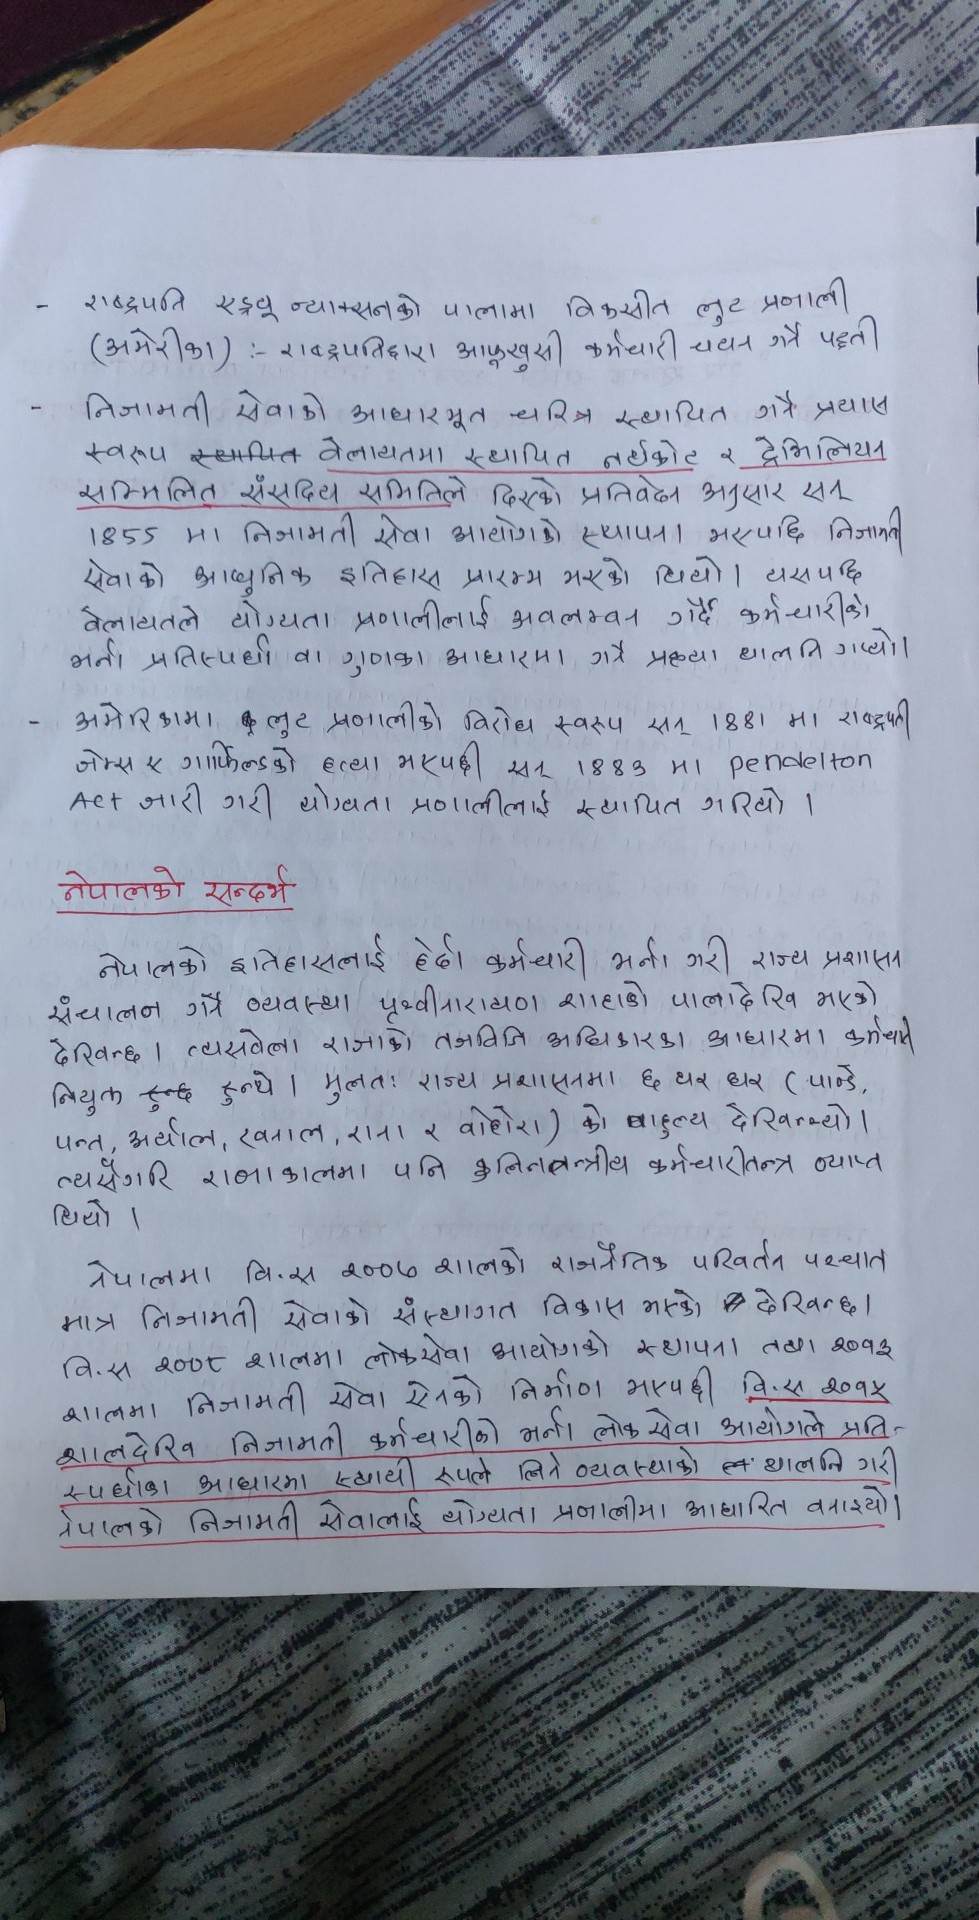 - राष्ट्रपति एड्र्यू ज्याक्सनको पालामा विकसीत लुट प्रणाली
(अमेरीका) :- राष्ट्रपतिद्वारा आफूखुसी कर्मचारी चयन गर्ने पद्दती
- निजामती सेवाको आधारभूत चरित्र स्थापित गर्ने प्रयास
स्वरूप स्थापित वेलायतमा स्थापित नर्थकोट र ट्रेभिलियन
सम्मिलित संसदिय समितिले दिएको प्रतिवेदन अनुसार सन्
1855 मा निजामती सेवा आयोगको स्थापना भएपछि निजामती
सेवाको आधुनिक इतिहास प्रारम्भ भएको थियो। यसपछि
वेलायतले योग्यता प्रणालीलाई अवलम्वन गर्दै कर्मचारीको
भर्ना प्रतिस्पर्धा वा गुणका आधारमा गर्ने प्रकृया थालनि गर्‍यो।
- अमेरिकामा लुट प्रणालीको विरोध स्वरूप सन् 1881 मा राष्ट्रपती
जेम्स ए गार्फिल्डको हत्या भएपछी सन् 1883 मा Pendelton
Act जारी गरी योग्यता प्रणालीलाई स्थापित गरियो ।
नेपालको सन्दर्भ
नेपालको इतिहासलाई हेर्दा कर्मचारी भर्ना गरी राज्य प्रशासन
संचालन गर्ने व्यवस्था पृथ्वीनारायण शाहाको पालादेखि भएको
देखिन्छ। त्यसवेला राजाको तजविजि अधिकारका आधारमा कर्मचारी
नियुक्त हुन्छ हुन्थे। मुलतः राज्य प्रशासनमा छ थर घर (पान्डे,
पन्त, अर्याल, खनाल, राना र वोहोरा) को बाहुल्य देखिन्थ्यो।
त्यसैगरि राणाकालमा पनि कुलिनतन्त्रीय कर्मचारीतन्त्र व्याप्त
थियो ।
नेपालमा वि.स २००७ शालको राजनैतिक परिवर्तन पश्चात
मात्र निजामती सेवाको संस्थागत विकास भएको देखिन्छ।
वि.स २००८ शालमा लोकसेवा आयोगको स्थापना तथा २०१३
शालमा निजामती सेवा ऐनको निर्माण भएपछी वि.स २०१५
शालदेखि निजामती कर्मचारीको भर्ना लोक सेवा आयोगले प्रति-
स्पर्धाका आधारमा स्थायी रूपले लिने व्यवस्थाको थालनि गरी
नेपालको निजामती सेवालाई योग्यता प्रणालीमा आधारित वनाइयो।